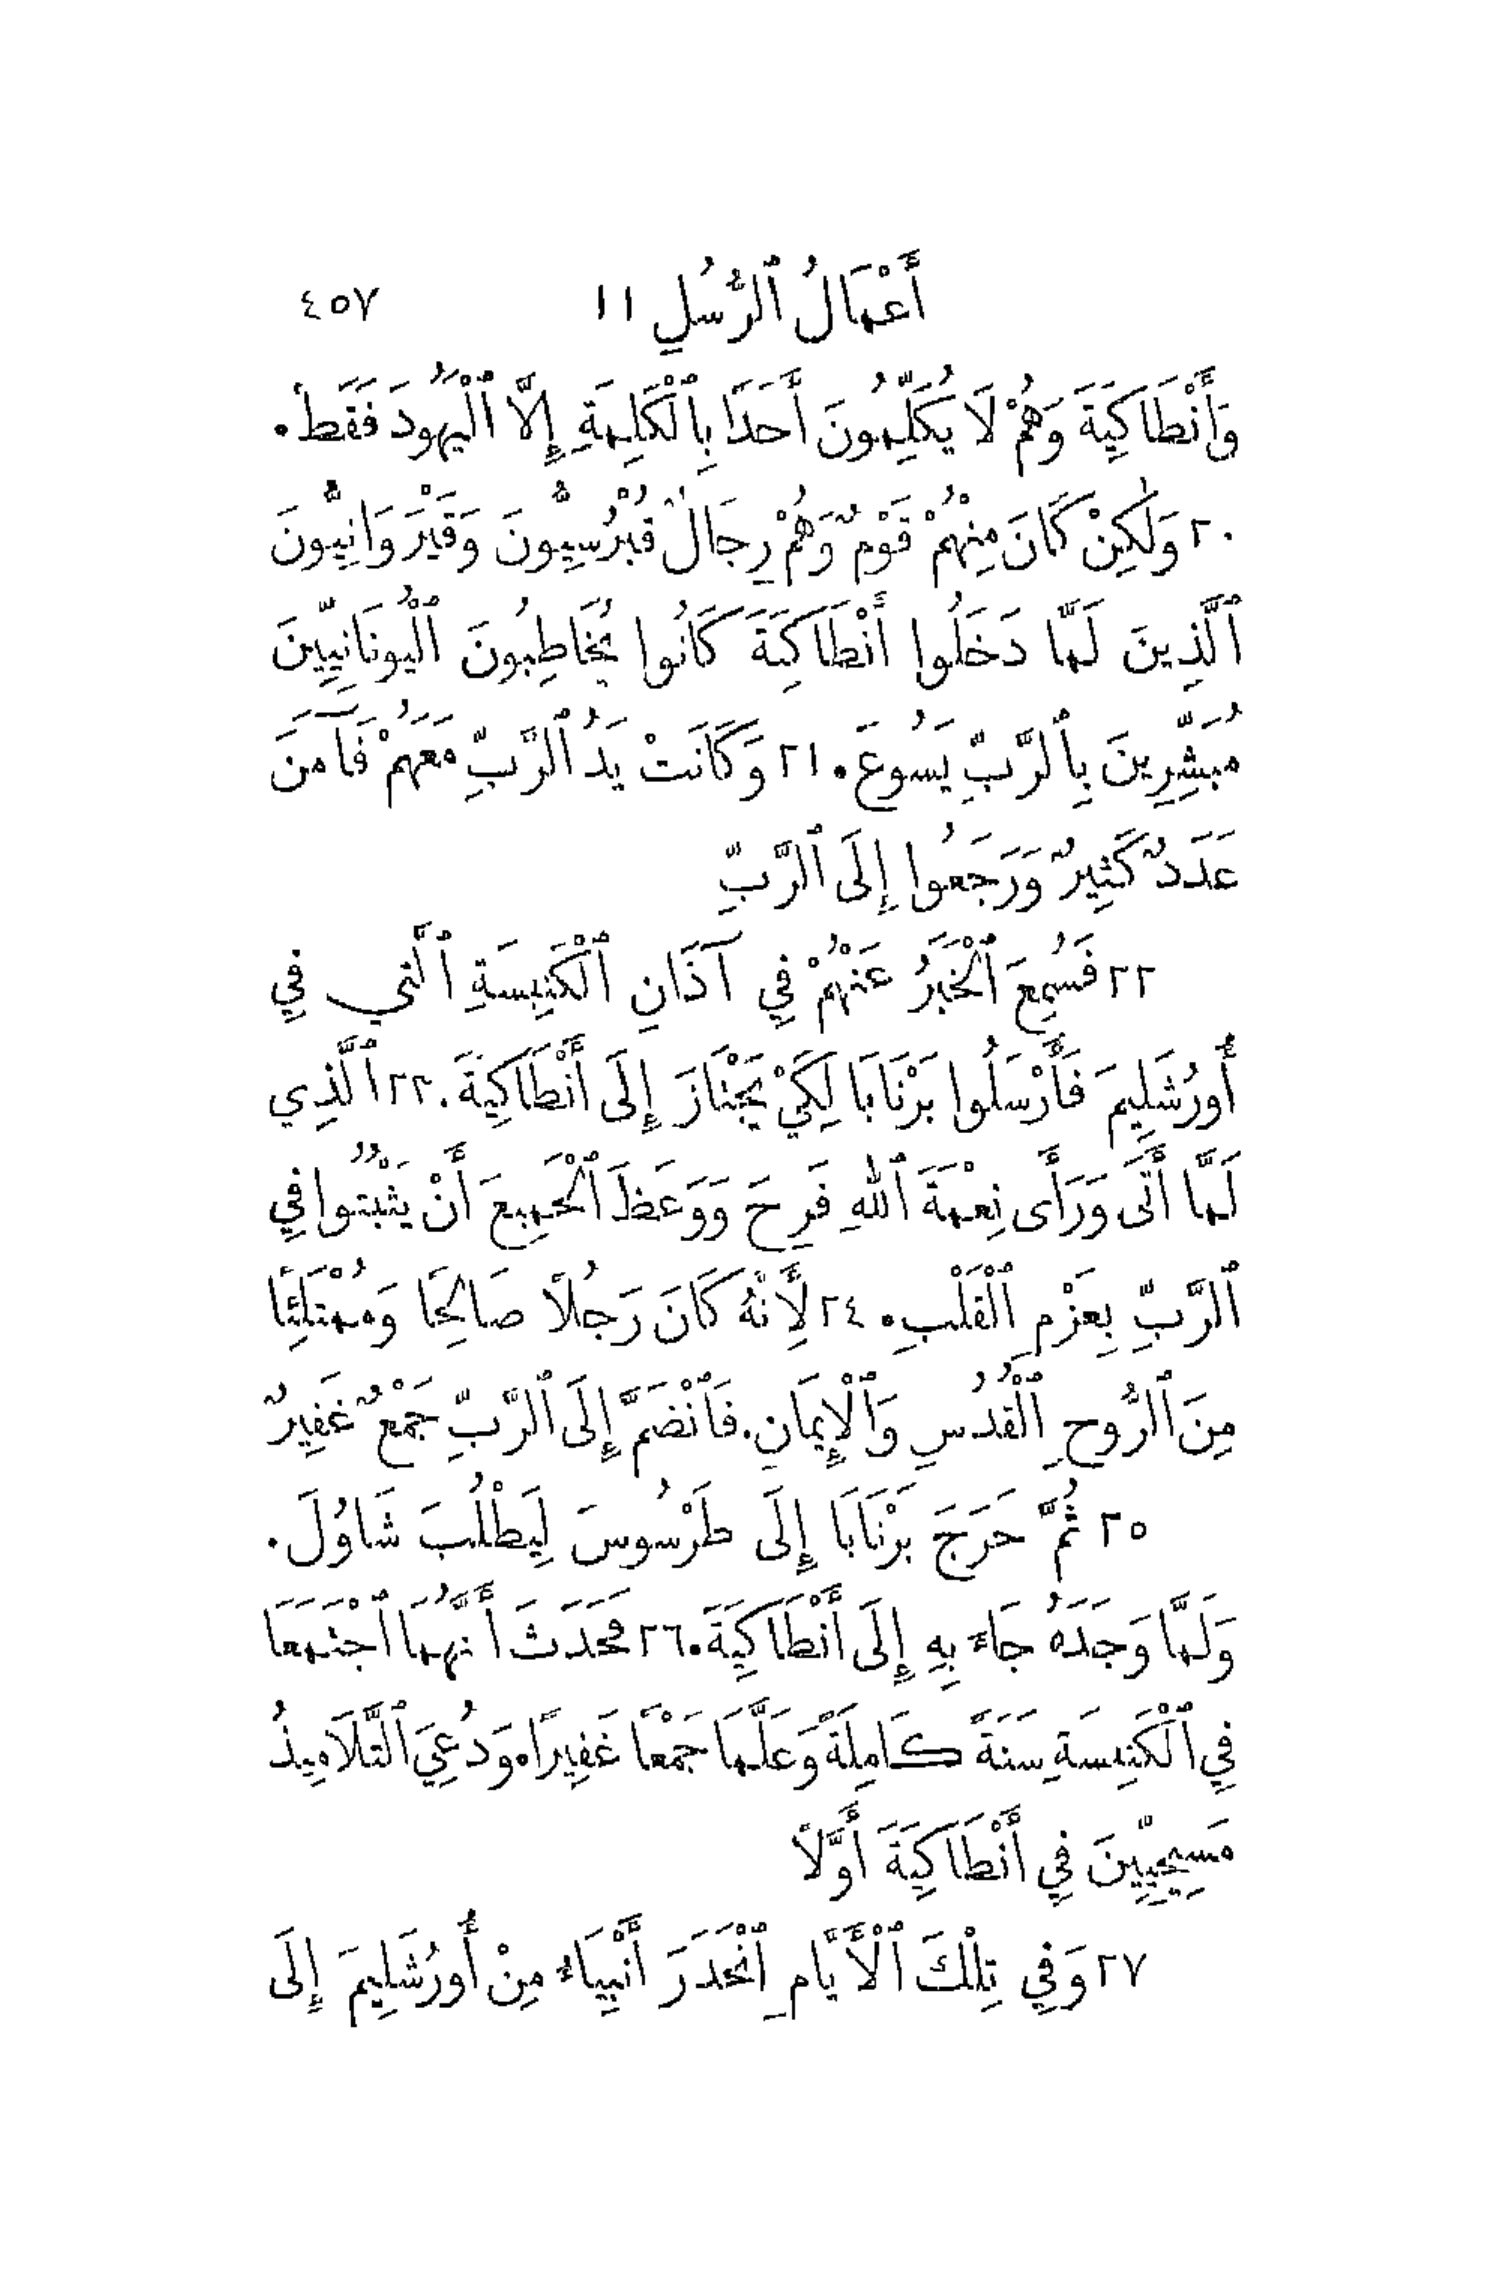 أَعْمَالُ ٱلرُّسُلِ ١١ ٤٥٧
وَأَنْطَاكِيَةَ وَهُمْ لَا يُكَلِّمُونَ أَحَدًا بِٱلْكَلِمَةِ إِلَّا ٱلْيَهُودَ فَقَطْ.
٢٠ وَلٰكِنْ كَانَ مِنْهُمْ قَوْمٌ وَهُمْ رِجَالٌ قُبْرُسِيُّونَ وَقَيْرَوَانِيُّونَ
ٱلَّذِينَ لَمَّا دَخَلُوا أَنْطَاكِيَةَ كَانُوا يُخَاطِبُونَ ٱلْيُونَانِيِّينَ
مُبَشِّرِينَ بِٱلرَّبِّ يَسُوعَ. ٢١ وَكَانَتْ يَدُ ٱلرَّبِّ مَعَهُمْ فَآمَنَ
عَدَدٌ كَثِيرٌ وَرَجَعُوا إِلَى ٱلرَّبِّ
٢٢ فَسُمِعَ ٱلْخَبَرُ عَنْهُمْ فِي آذَانِ ٱلْكَنِيسَةِ ٱلَّتِي فِي
أُورُشَلِيمَ فَأَرْسَلُوا بَرْنَابَا لِكَيْ يَجْتَازَ إِلَى أَنْطَاكِيَةَ. ٢٣ ٱلَّذِي
لَمَّا أَتَى وَرَأَى نِعْمَةَ ٱللهِ فَرِحَ وَوَعَظَ ٱلْجَمِيعَ أَنْ يَثْبُتُوا فِي
ٱلرَّبِّ بِعَزْمِ ٱلْقَلْبِ. ٢٤ لِأَنَّهُ كَانَ رَجُلًا صَالِحًا وَمُمْتَلِئًا
مِنَ ٱلرُّوحِ ٱلْقُدُسِ وَٱلْإِيمَانِ. فَٱنْضَمَّ إِلَى ٱلرَّبِّ جَمْعٌ غَفِيرٌ
٢٥ ثُمَّ خَرَجَ بَرْنَابَا إِلَى طَرْسُوسَ لِيَطْلُبَ شَاوُلَ.
وَلَمَّا وَجَدَهُ جَاءَ بِهِ إِلَى أَنْطَاكِيَةَ. ٢٦ فَحَدَثَ أَنَّهُمَا ٱجْتَمَعَا
فِي ٱلْكَنِيسَةِ سَنَةً كَامِلَةً وَعَلَّمَا جَمْعًا غَفِيرًا. وَدُعِيَ ٱلتَّلَامِيذُ
مَسِيحِيِّينَ فِي أَنْطَاكِيَةَ أَوَّلًا
٢٧ وَفِي تِلْكَ ٱلْأَيَّامِ ٱنْحَدَرَ أَنْبِيَاءُ مِنْ أُورُشَلِيمَ إِلَى